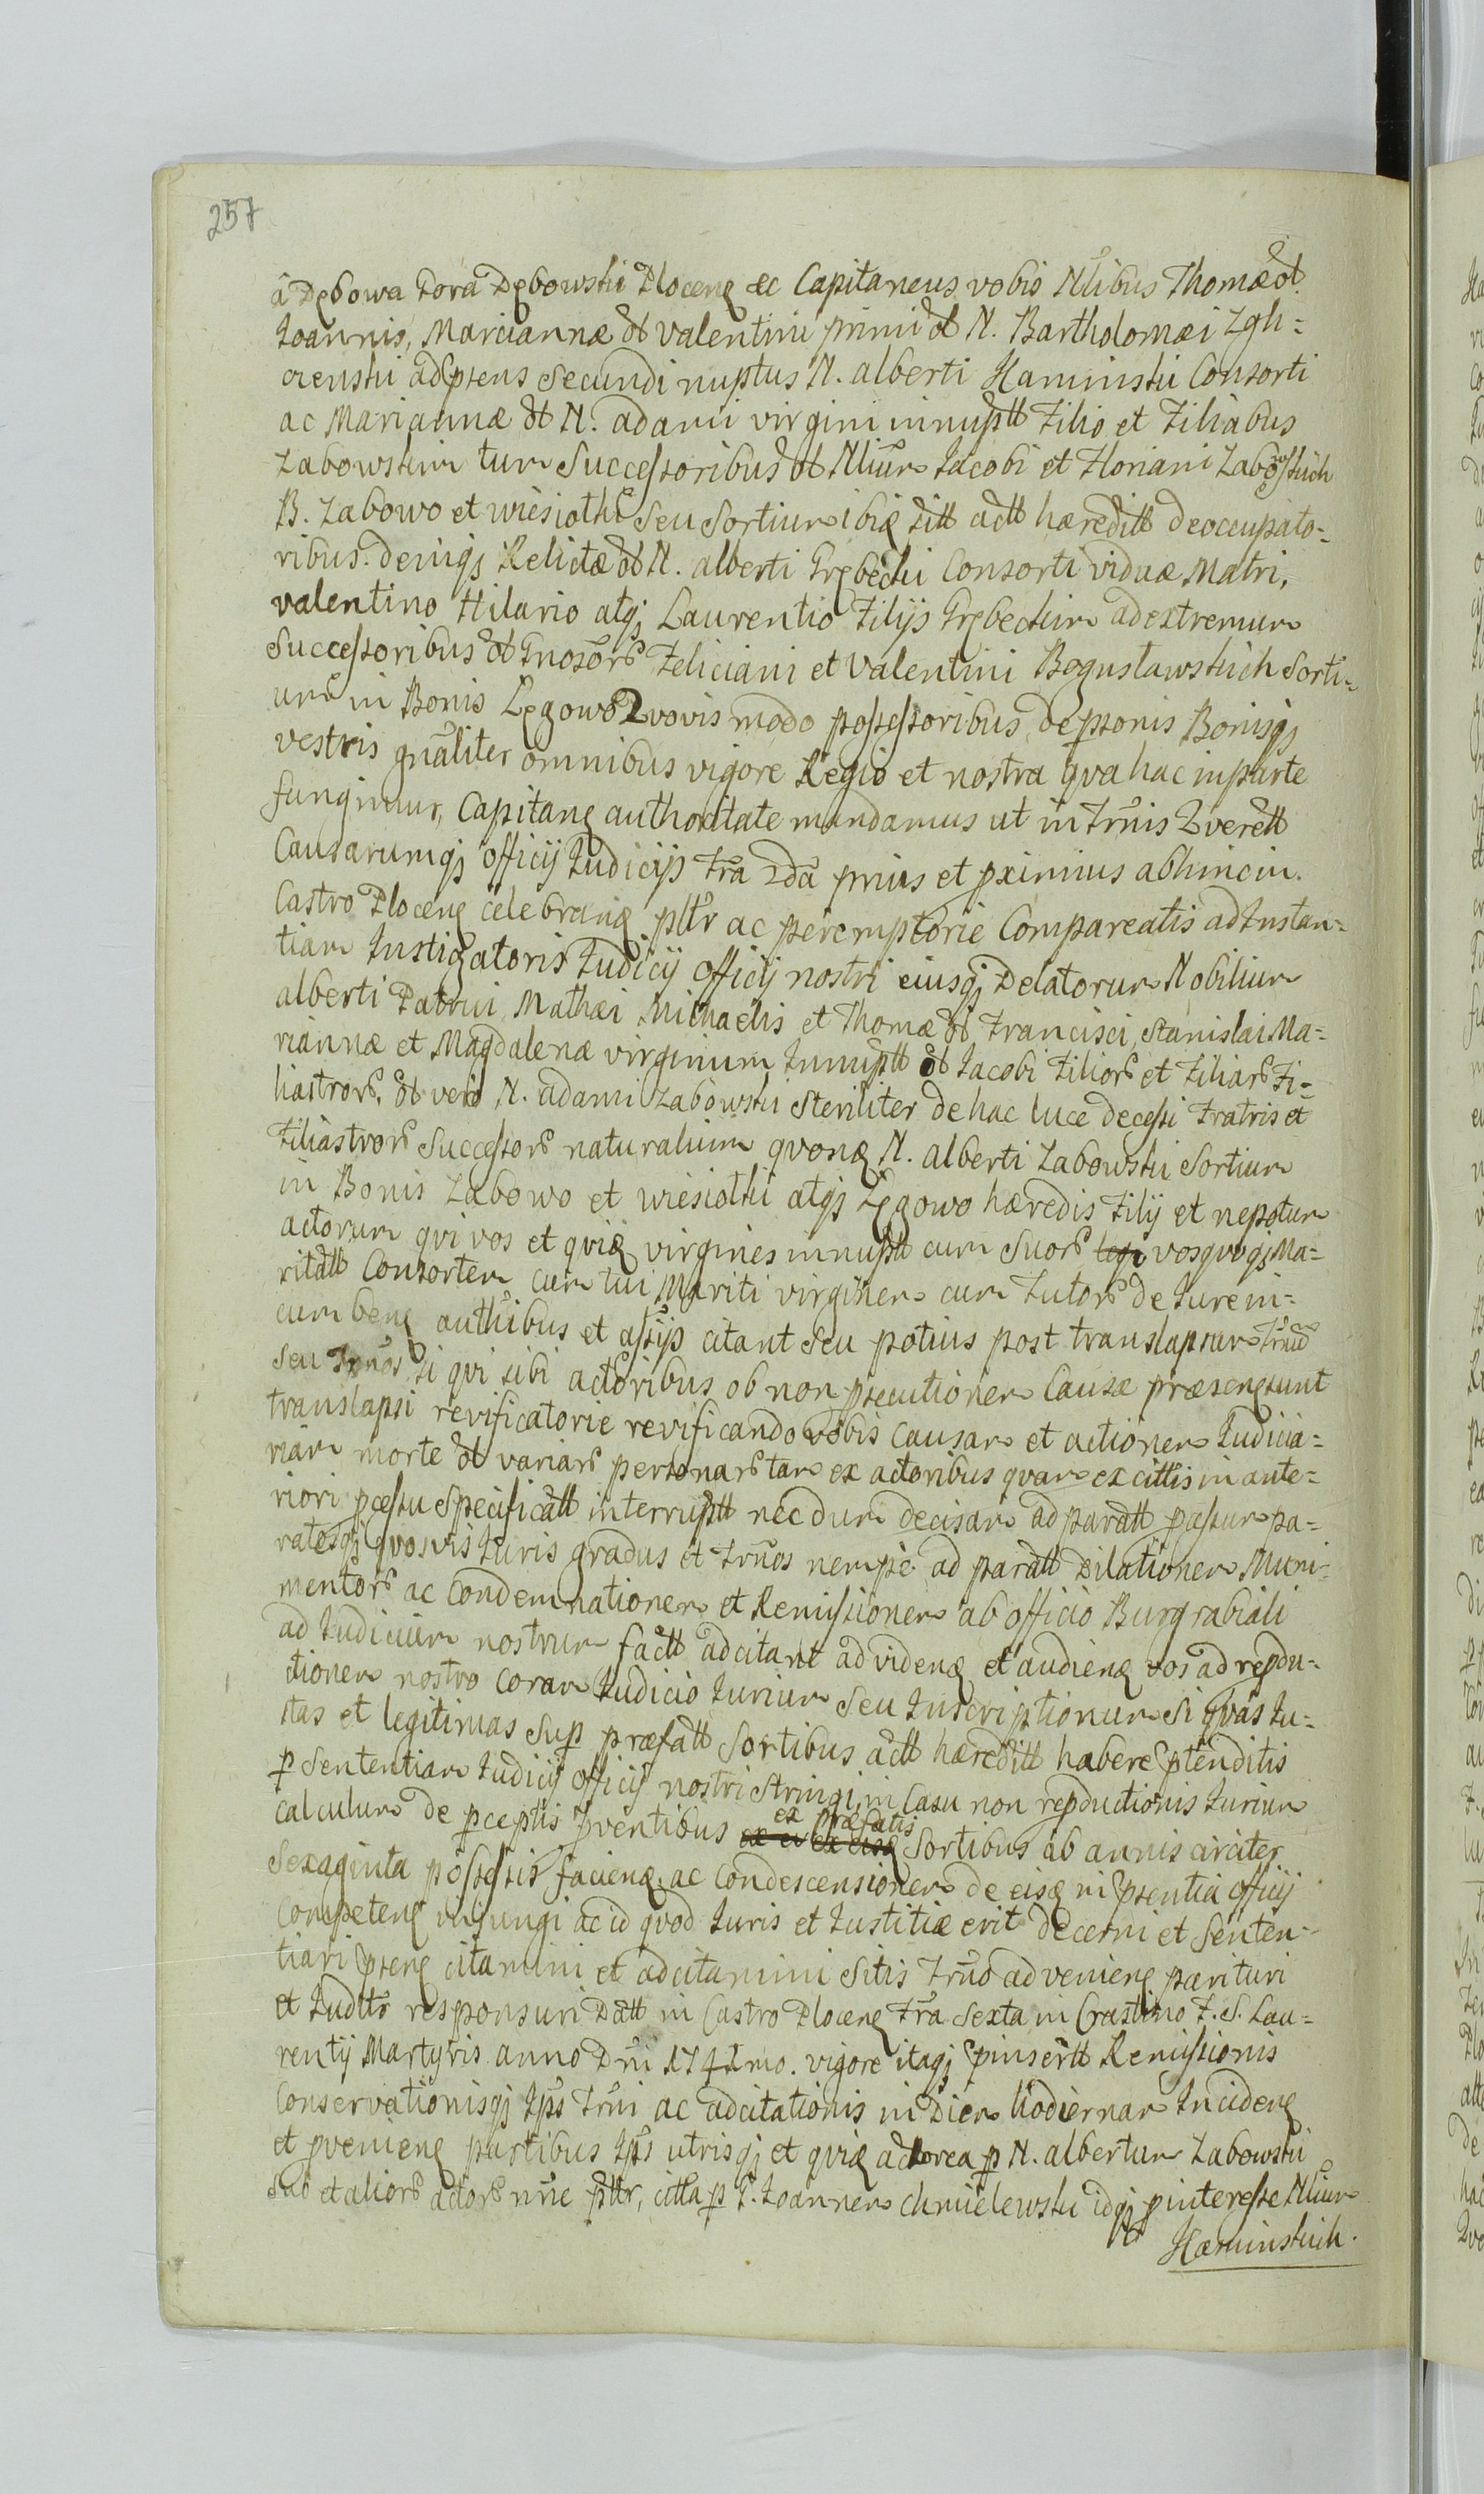 257
à Dębowa Gora Dębowski Plocenę &c Capitaneus vobis Nlibus Thomæ ol
Joannis, Mariannæ ol Valentini primi ol N. Bartholomæi Zgli=
czenski ad psens secundi nuptus N. alberti Kaminski Consorti
ac Mariannæ ol N. adami virgini innuptt Filio et Filiabus
Zabowskim tum Successoribus ol Nlium Jacobi et Floriani Zabowskich
B. Zabowo et wiesiotki seu Sortium ibię sitt actt hæreditt deoccupato=
ribus. deniqz Relictæ ol N. alberti Grębecki Consorti viduæ Matri,
valentino Hilario atqz Laurentio Filijs Grębeckim ad extremum
Successoribus ol Gnosor Feliciani et Valentini Bogusławskich Sorti=
um in Bonis Łęgowo Qvovis modo possessoribus, de psonis Bonisqz
vestris gnaliter omnibus vigore Regio et nostra qva hac in parte
fungimur, Capitanę authoritate mandamus ut in Trnis Qverell
Causarumqz officij Judicijs Fra 2da prius et pximius abhinc in
Castro Plocenę celebranę. pltr ac peremptorie Compareatis ad Instan=
tiam Instigatoris Judicij officij nostri eiusqz Delatorum Nobilium
alberti Patrui, Mathæi Michaelis et Thomæ ol Francisci, Stanislai Ma=
riannæ et Magdalenæ virginum Innuptt ol Jacobi Filior et Filiar Fi=
liastror, ol vero N. adami Zabowski steriliter de hac luce decessi Fratris et
Filiastror Successor naturalium qvonę N. alberti Zabowski Sortium
in Bonis Zabowo et wiesiotki atqz Łęgowo hæredis Filij et nepotum
actorum qui vos et qvię virgines innuptt cum Suor vosqvoqz Ma=
ritatt Consortem cum tui Mariti virginem cum Tutor de Jure in=
cumbenę authibus et assijs citant seu potius post translapsum Trnum
seu Trnos si qvi sibi actoribus ob non psecutionem Causæ præsenę sunt
translapsi revificatorie revificando vobis causam et actionem Judicia=
riam morte ol variar personar tam ex actoribus qvam ex cittis in ante=
riori pcessu Specificatt interruptt necdum decisam ad paratt pcessum pa=
ratesqz qvosvis Juris gradus et Trnos nempe ad paratt Dilationem Muni=
mentor ac Condemnationem et Remissionem ab officio Burgrabiali
ad Judicium nostrum factt adcitant ad videnę et audienę vos ad repdu=
ctionem nostro coram Judicio Jurium seu Inscriptionum si qvas Ju=
stas et legitimas sup præfatt Sortibus actt hæreditt habere ptenditis
p Sententiam Judicij officij nostri stringi, in Casu non repductionis Jurium
calculum de pceptis pventibus ex præfatis Sortibus ab annis circiter
Sexaginta possessis facienę ac Condescensionem de eisę in psentia officij
Competenę injungi ac id qvod Juris et Justitiæ erit decerni et Senten=
tiari psenę citamini et adcitamini Sitis Trno advenienę parituri
et Judtr responsuri Datt in Castro Plocenę Fra Sexta in Crastino F. S. Lau=
rentij Martyris anno Dni 1741mo. vigore itaqz pinsertt Remissionis
Conservationisqz Ips Trni ac adcitationis in Diem hodiernam Incidenę
et pvenienę partibus Ips utrisqz et qvię actorea p N. albertum Zabowski
Suo et alior actor nne pltr, citta p G. Joannem Chmielewski idqz pinteresse Nlium
Kaminskich.